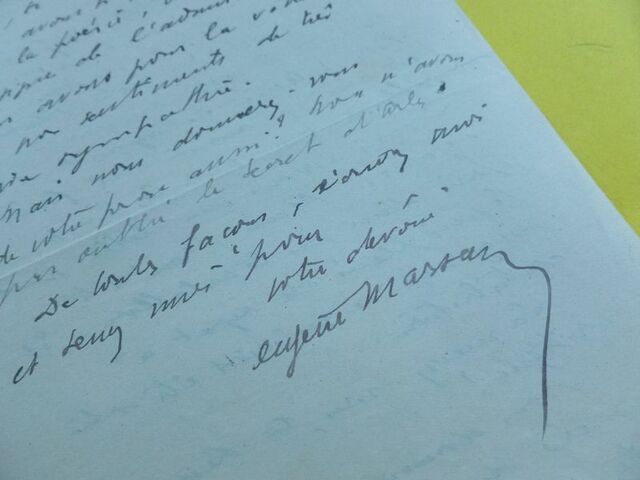 la poésie,
de l'admi
avons pour la
nos sentiments de très
sympathie.
Mais nous donnerez-vous
de votre prose aussi? Nous n'avons
pas oublié le secret d'
De toutes façons, moi
et tenez moi pour
votre dévoué.
Eugène Marsan